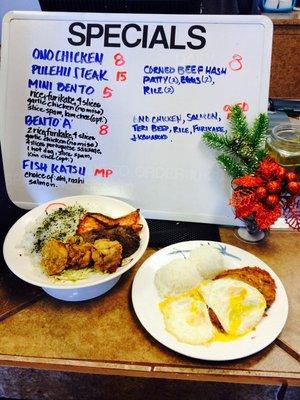 SPECIALS
ONO CHICKEN 8
PULEHU STEAK 15
MINI BENTO 5
rice, furikake, 4 slices
garlic chicken (no miso)
slice spam, kim chee (opt.)
BENTO A 8
2 rice, furikake, 4 slices
garlic chicken (no miso)
2 slices portuguese sausage
1 hot dog, 2 slices spam
kim chee (opt.)
FISH KATSU MP
choice of ahi, nashi
salmon.
CORNED BEEF HASH 8
PATTY(2), EGGS(2),
RICE(2)
ONO CHICKEN, SALMON,
TERI BEEF, RICE, FURIKAKE,